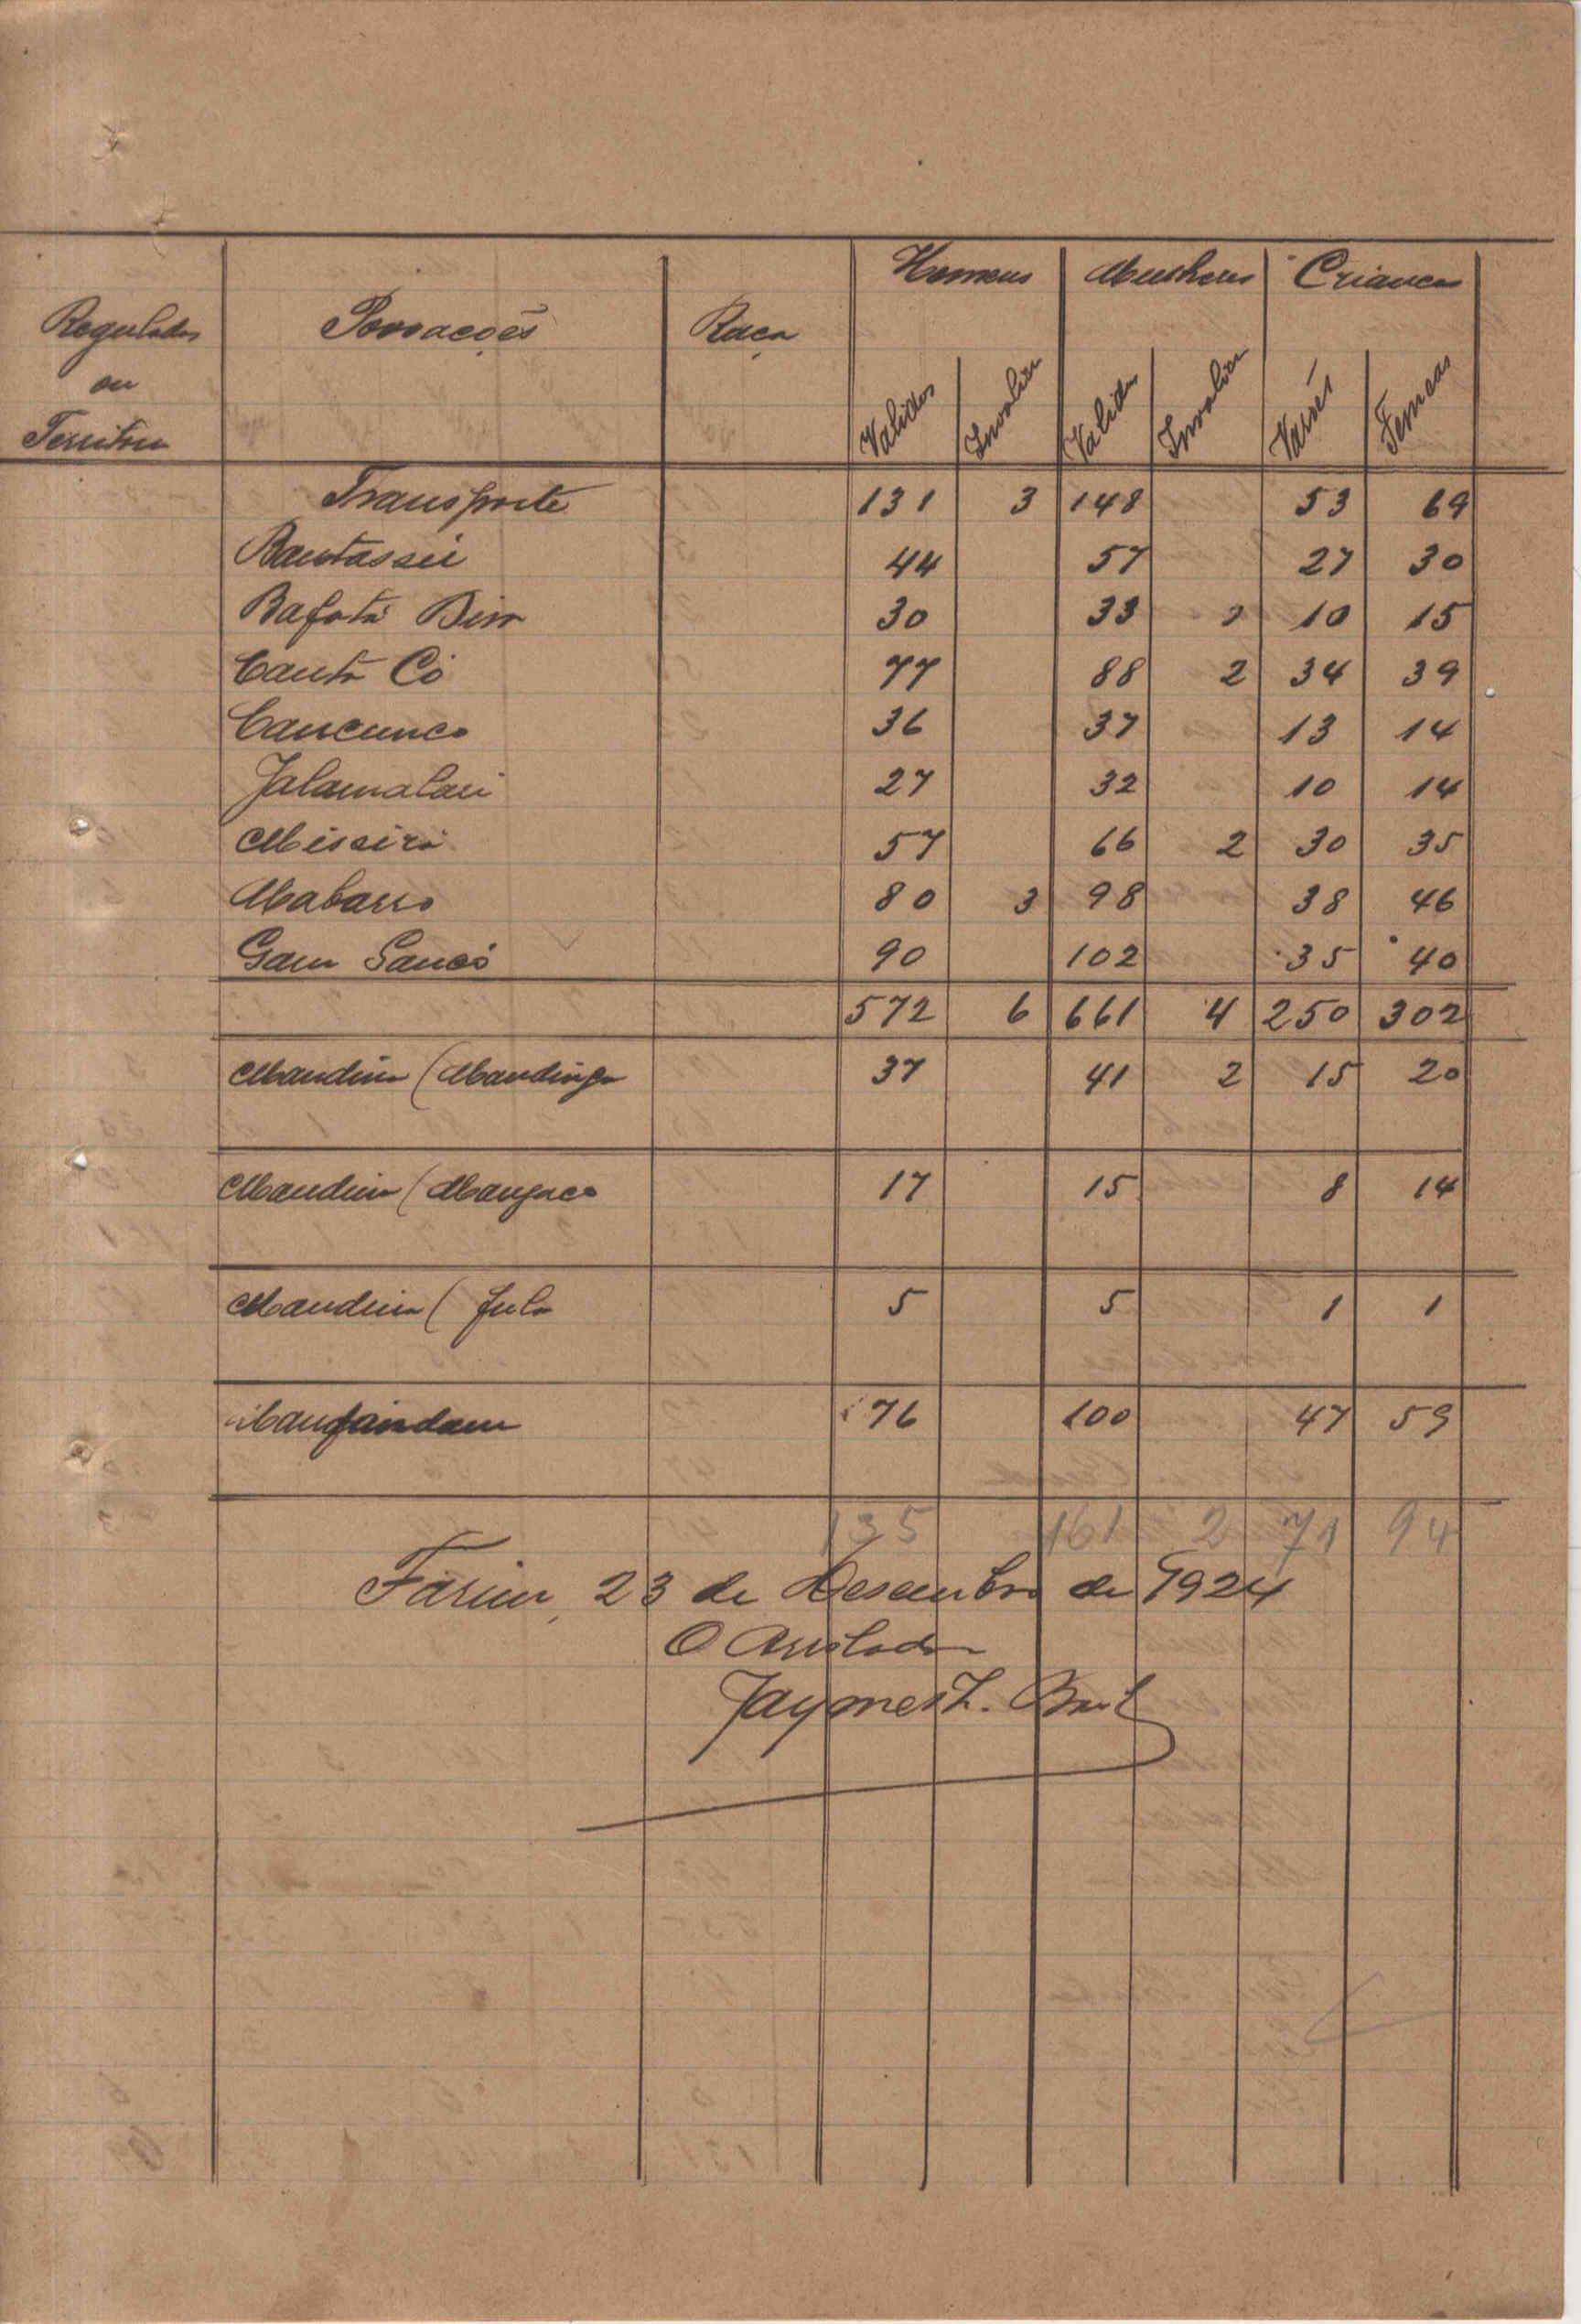 Homens Mulheres Crianças
Regulados Povoações Raça
ou
Territorio
Validos Invalidos Validos Invalidos Varões Femeas
Transporte 131 3 148 53 69
Bantassú 44 57 27 30
Bafatá Birr 30 33 10 15
Cantá Có 77 88 2 34 39
Cancunco 36 37 13 14
Jalamalan 27 32 10 14
Missirá 57 66 2 30 35
Mabarro 80 3 98 38 46
Gam Sancó 90 102 35 40
572 6 661 4 250 302
Mandim (Mandinga 37 41 2 15 20
Mandim (Manjaco 17 15 8 14
Mandim (Fula 5 5 1 1
76 100 47 59
135 161 2 71 94
Farim, 23 de Desembro de 1924
O Arrolador
Jayme